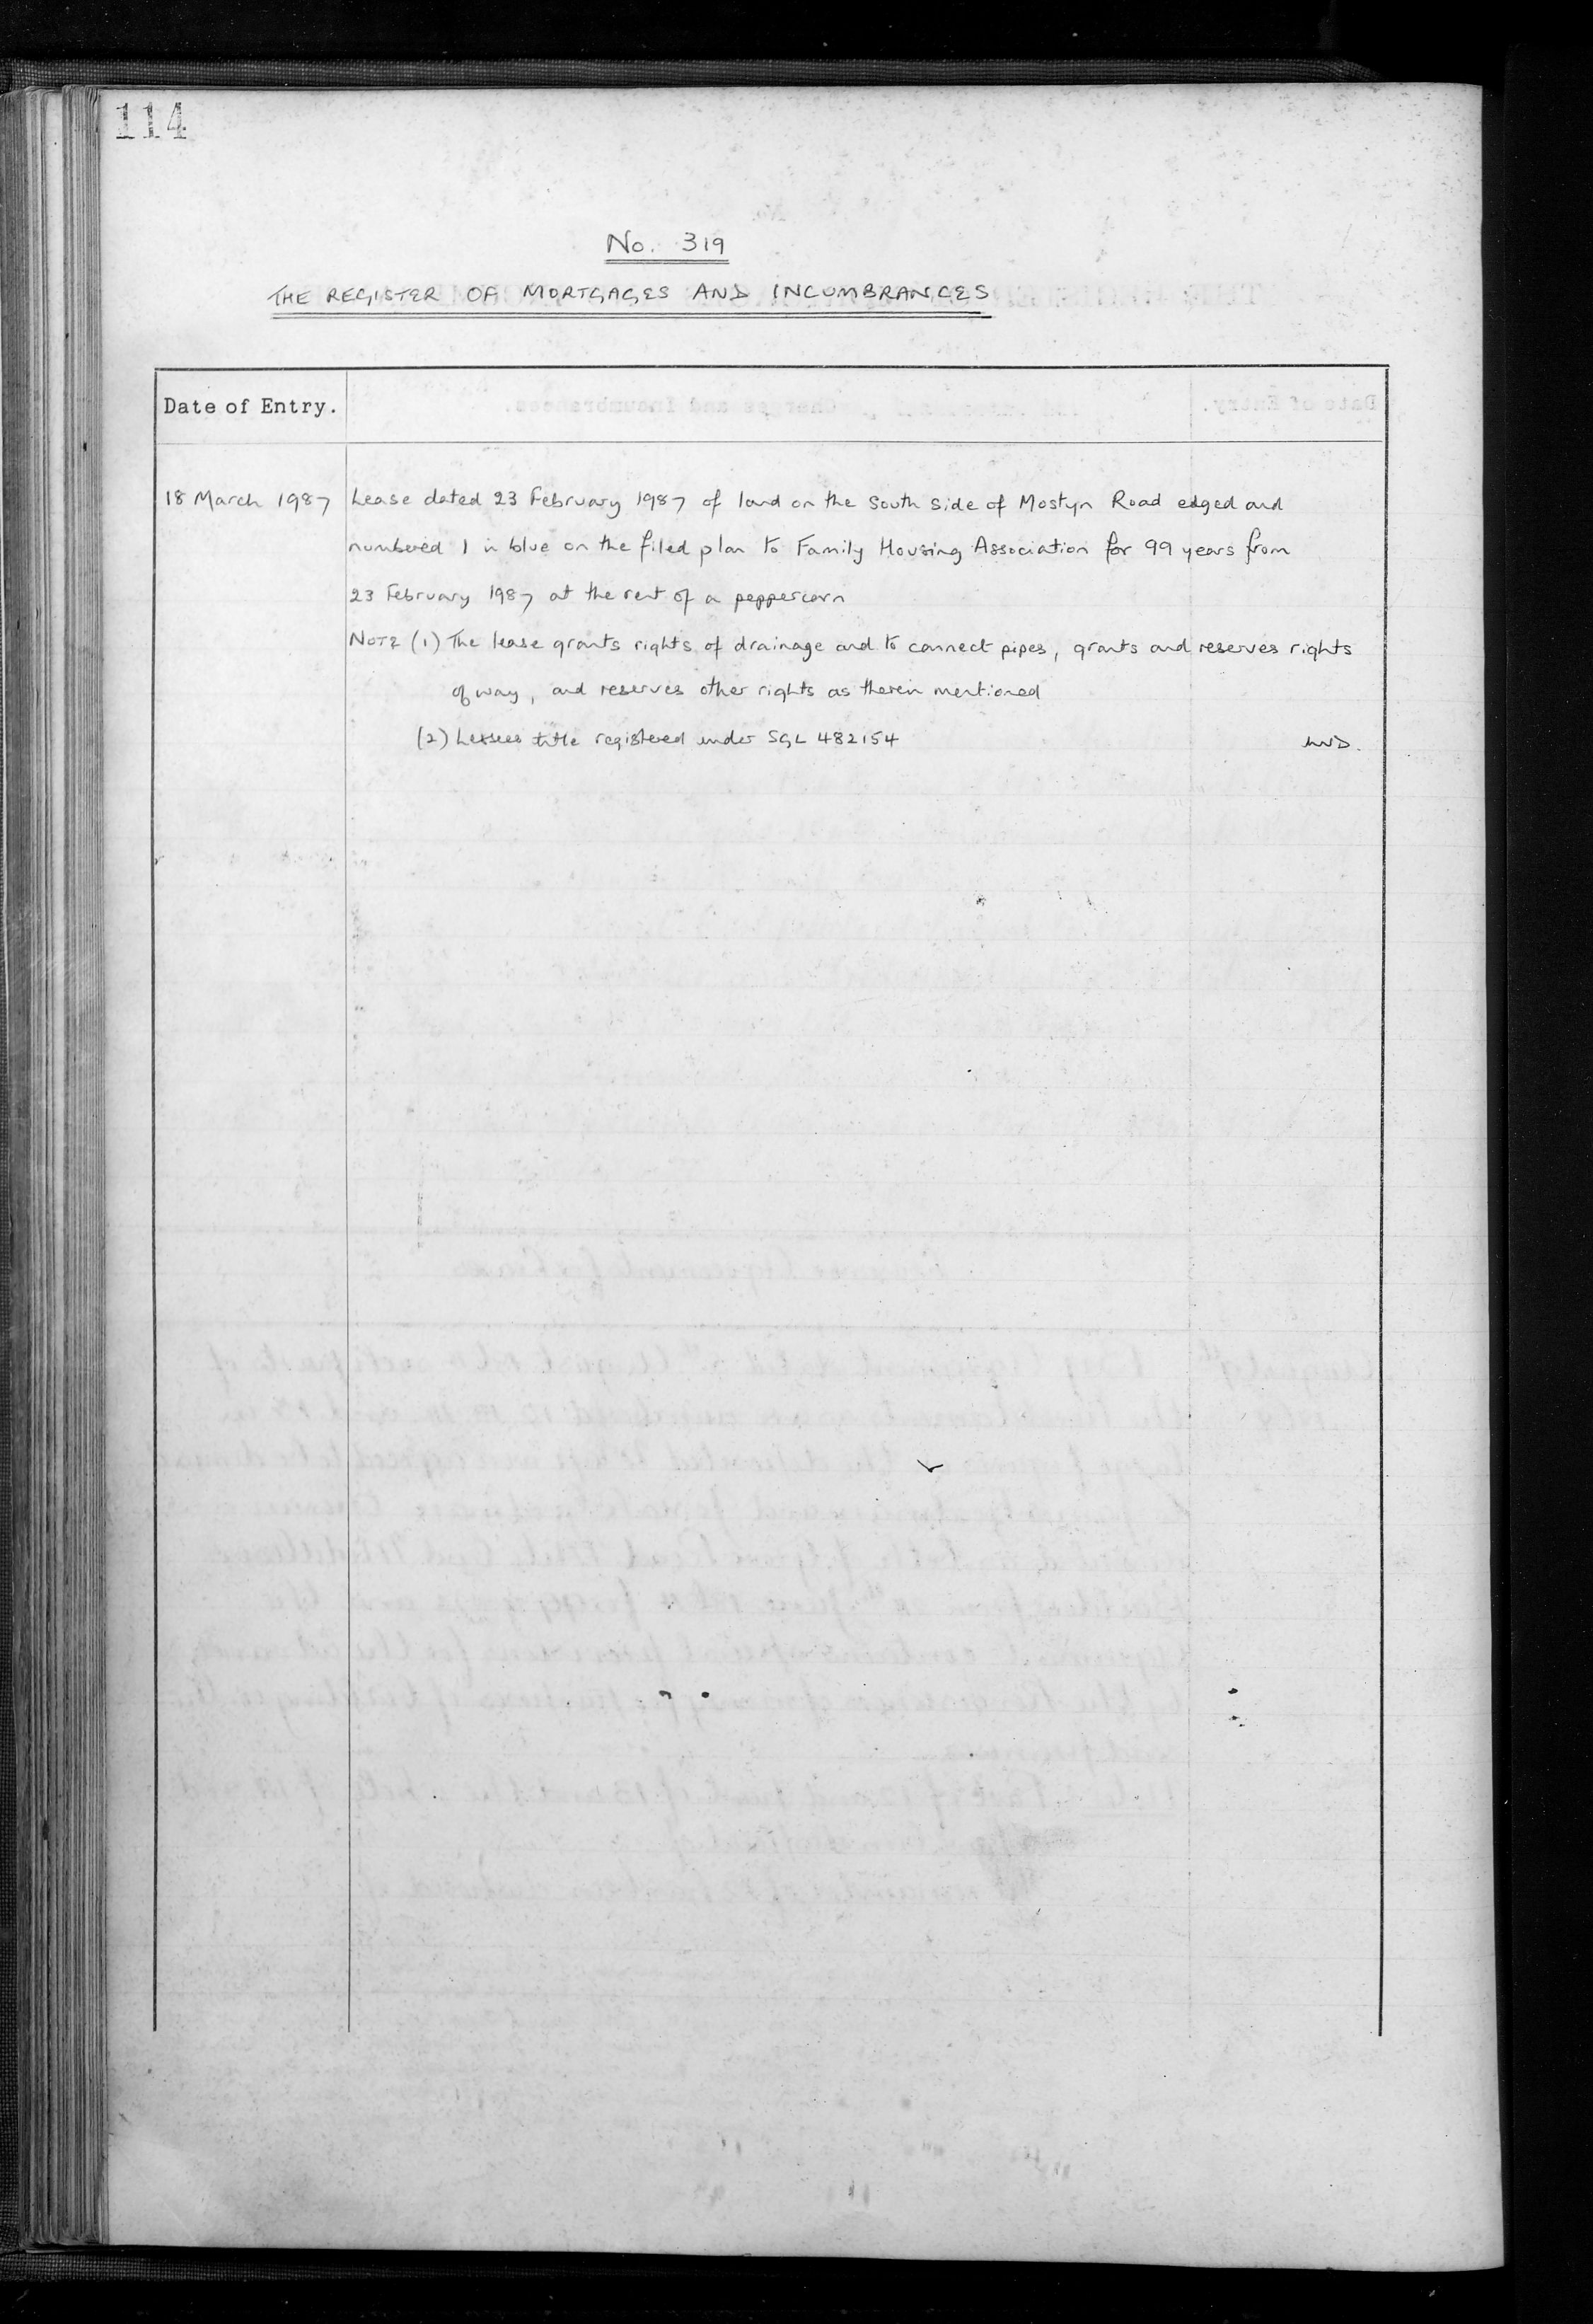 114
No. 319
THE REGISTER OF MORTGAGES AND INCUMBRANCES
Date of Entry.
18 March 1987 Lease dated 23 February 1987 of land on the South side of Mostyn Road edged and
numbered 1 in blue on the filed plan to Family Housing Association for 99 years from
23 February 1987 at the rent of a peppercorn
NOTE (1) The lease grants rights of drainage and to connect pipes, grants and reserves rights
of way, and reserves other rights as therein mentioned
(2) Lessees title registered under SGL 482154